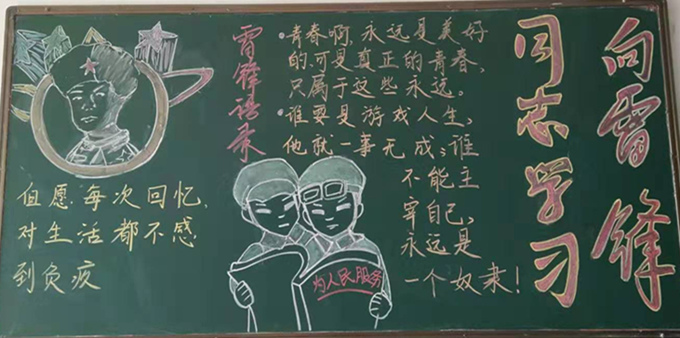 向雷锋
同志学习
雷锋语录
·青春啊,永远是美好
的,可是真正的青春,
只属于这些永远。
·谁要是游戏人生,
他就一事无成;谁
不能主
宰自己,
永远是
一个奴隶!
为人民服务
但愿每次回忆,
对生活都不感
到负疚